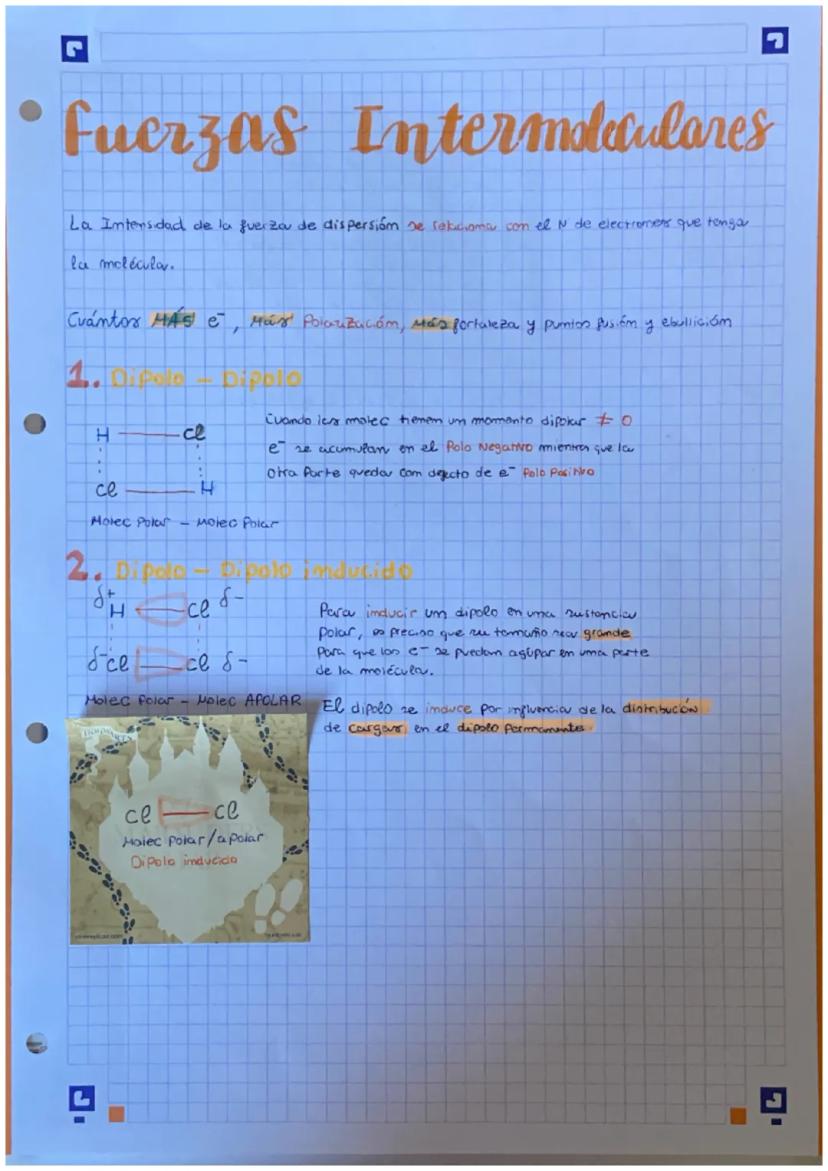 Fuerzas Intermoleculares
La Intensidad de la fuerza de dispersión se relaciona con el N de electrones que tenga
la molécula.
Cuántos MÁS e⁻, Más Polarización, Más fortaleza y puntos fusión y ebullición
1. Dipolo - Dipolo
H — Cl
Cl — H
Molec Polar - Molec Polar
Cuando las molec tienen un momento dipolar ≠ 0
e⁻ se acumulan en el Polo Negativo mientras que la
otra Parte queda con defecto de e⁻ Polo Positivo
2. Dipolo - Dipolo inducido
δ+ H Cl δ-
δ- Cl Cl δ-
Molec Polar - Molec APOLAR
Para inducir un dipolo en una sustancia
Polar, es preciso que su tamaño sea grande
Para que los e⁻ se puedan agupar en una parte
de la molécula.
El dipolo se induce por influencia de la distribución
de cargas en el dipolo Permanente.
Cl Cl
Molec Polar/apolar
Dipolo inducido